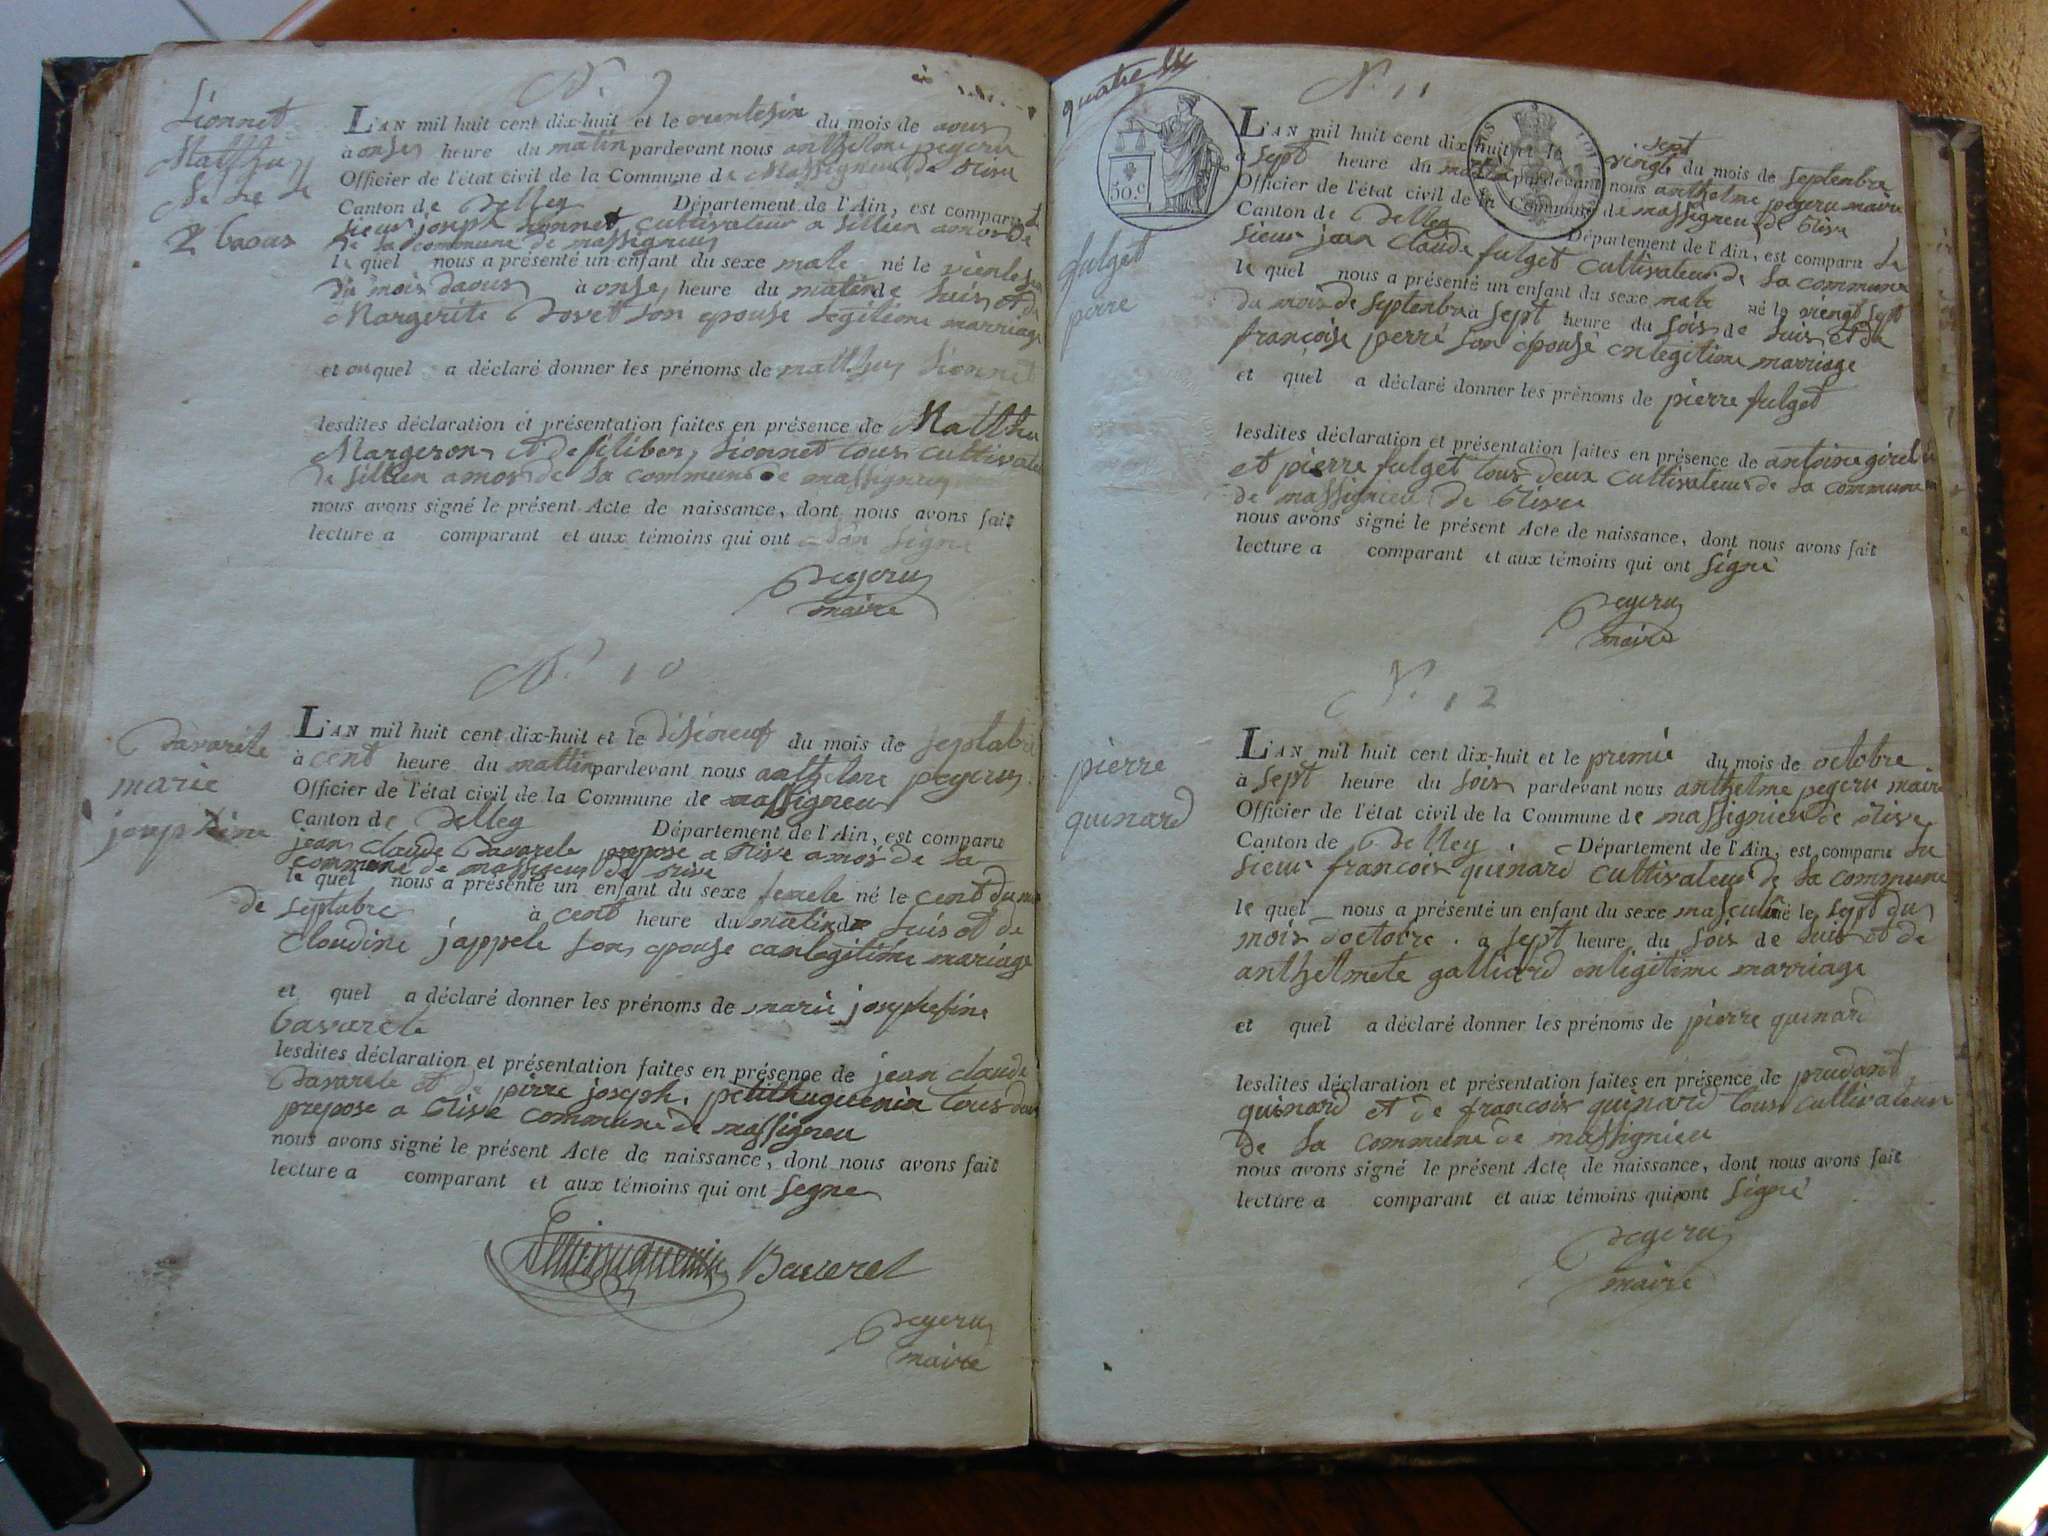 N.° 9
Lionnet
Matthieu
2 6 aous
L'AN mil huit cent dix-huit et le ventesix du mois de aous
à onse heure du matin pardevant nous anthelme pegeru
Officier de l'état civil de la Commune de Massigneu de Rive
Canton de Belley Département de l'Ain, est comparu le
sieur joseph Lionnet cultivateur a Sillien amos de
de la commune de massigneu
le quel nous a présenté un enfant du sexe male né le
du mois daous à onse heure du matin de luis et de
Margerite Bovet son epouse legitime marriage
et auquel a déclaré donner les prénoms de matthieu Lionnet
lesdites déclaration et présentation faites en présence de Matthieu
Margeron et de filiber Lionnet tous cultivateur
de Sillien amos de la commune de massigneu
nous avons signé le présent Acte de naissance, dont nous avons fait
lecture a comparant et aux témoins qui ont signé
Pegeru
maire
N.° 10
Bavarele
marie
josephine
L'AN mil huit cent dix-huit et le diseneuf du mois de septabre
à cent heure du mattin pardevant nous anthelme pegeru
Officier de l'état civil de la Commune de massigneu
Canton de Belley Département de l'Ain, est comparu
jean claude Bavarele prepose a Rive amos de la
commune de massigneu de rive
le quel nous a présenté un enfant du sexe femele né le cent du moi
de septabre à cent heure du matin de luis et de
Claudine jappele son epouse canlegitime mariage
et quel a déclaré donner les prénoms de marie josephine
bavarele
lesdites déclaration et présentation faites en présence de jean claude
Bavarele et de pirre joseph petithuguenin tous deux
prepose a Rive commune de massigneu
nous avons signé le présent Acte de naissance, dont nous avons fait
lecture a comparant et aux témoins qui ont segne
Petithuguenin Baverel
Pegeru
maire
quatre
50.c
N.° 11
fulget
pierre
L'AN mil huit cent dix-huit et le vingt sept du mois de septembre
à sept heure du matin pardevant nous anthelme pegeru maire
Officier de l'état civil de la Commune de massigneu de Rive
Canton de Belley Département de l'Ain, est comparu le
sieur jean claude fulget cultivateur de la commune
le quel nous a présenté un enfant du sexe male né le viengt sept
du mois de septembre à sept heure du soir de luis et de
francoise perré son epouse en legitime marriage
et quel a déclaré donner les prénoms de pierre fulget
lesdites déclaration et présentation faites en présence de antoine
et pierre fulget tous deux cultivateur de la commune
de massignieu de Rive
nous avons signé le présent Acte de naissance, dont nous avons fait
lecture a comparant et aux témoins qui ont signé
Pegeru
maire
N.° 12
pierre
quinard
L'AN mil huit cent dix-huit et le premie du mois de octobre
à sept heure du soir pardevant nous anthelme pegeru maire
Officier de l'état civil de la Commune de massignieu de Rive
Canton de Belley Département de l'Ain, est comparu le
sieur francoir quinard cultivateur de la commune
le quel nous a présenté un enfant du sexe masculin né le sept du
mois doctoire à sept heure du soir de luis et de
anthelmete galliard en ligitime marriage
et quel a déclaré donner les prénoms de pierre quinard
lesdites déclaration et présentation faites en présence de prudant
quinard et de francoir quinard tous cultivateur
de la commune de massignieu
nous avons signé le présent Acte de naissance, dont nous avons fait
lecture a comparant et aux témoins qui ont signé
Pegeru
maire